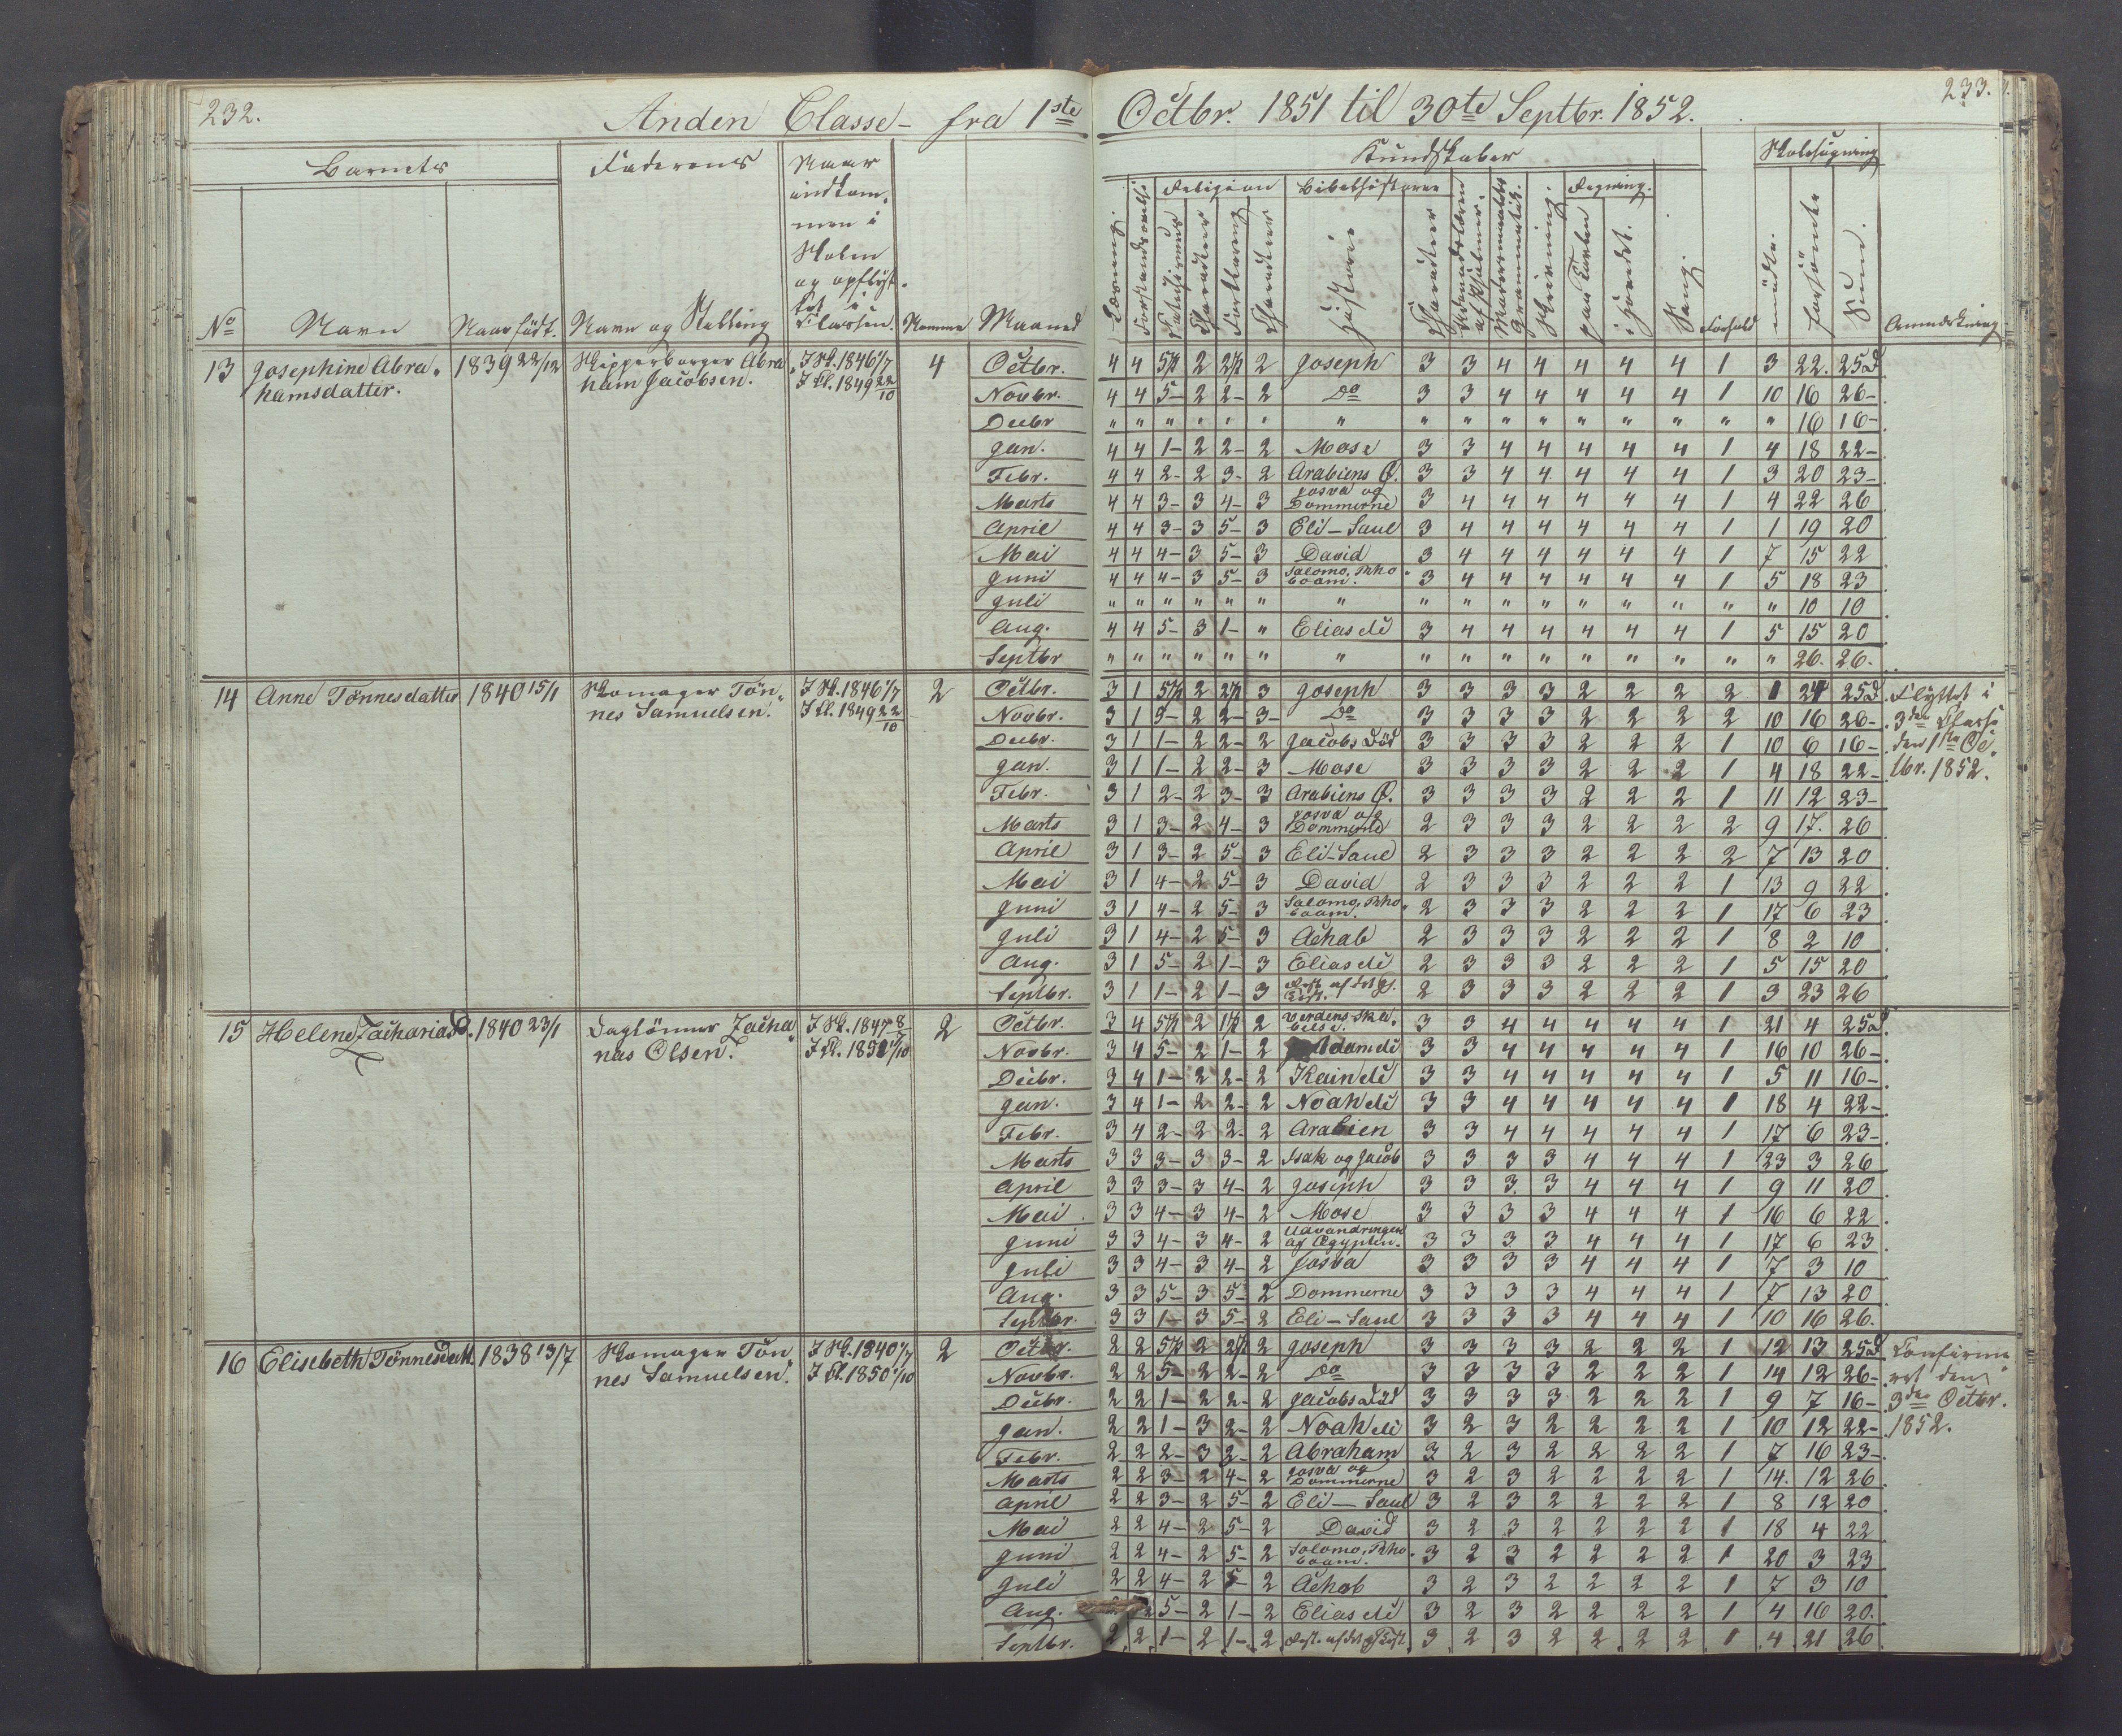 232.
Anden Classe – fra 1ste
Octbr. 1851 til 30te Septbr. 1852.
233.
Barnets
Faderens
Naar indkom-
men i
Skolen
og opflyt-
tet i
Classen.
No
Navn
Naar født.
Navn og Stilling
Nummer
Maaned
Kundskaber
Skolesøgning
Religion
Bibelhistorie
Regning.
Læsning.
Historie
Charakter
Skrivning.
paa Tavlen
i Hovedet.
Sang.
Forhold
mødte.
forsömte
Sum.
Anmærkning
13 Josephine Abra-
hamsdatter.
1839 22/12
Skipperborger Abra-
ham Jacobsen.
I Sk. 1846 1/7
I Cl. 1849 22/10
4
Octbr. 4 4 5½ 2 2½ 2 Joseph 3 3 4 4 4 4 4 1 3 22. 25 D
Novbr. 4 4 5– 2 2– 2 Do 3 3 4 4 4 4 4 1 10 16 26–
Decbr " " " " " " " " " " " " " " " " 16 16–
Jan. 4 4 1– 2 2– 2 Mose 3 3 4 4 4 4 4 1 4 18 22–
Febr. 4 4 2– 2 3– 2 Arabiens Ø. 3 3 4 4 4 4 4 1 3 20 23–
Marts 4 4 3– 3 4– 3 Josva og Dommerne 3 4 4 4 4 4 4 1 4 22 26
April 4 4 3– 3 5– 3 Eli – Saul 3 4 4 4 4 4 4 1 1 19 20
Mai 4 4 4– 3 5– 3 David 3 4 4 4 4 4 4 1 7 15 22
Juni 4 4 4– 3 5– 3 Salomo, Rho-boam. 3 4 4 4 4 4 4 1 5 18 23
Juli " " " " " " " " " " " " " " " " 10 10
Aug. 4 4 5– 3 1– " Elias etc 3 4 4 4 4 4 4 1 5 15 20
Septbr " " " " " " " " " " " " " " " " 26. 26.
14 Anne Tønnesdatter
1840 15/1
Skomager Tön-
nes Samuelsen.
I Sk. 1846 1/7
I Cl. 1849 22/10
2
Octbr. 3 1 5½ 2 2½ 3 Joseph 3 3 3 3 2 2 2 2 1 24 25 D.
Novbr. 3 1 5– 2 2– 3– Do 3 3 3 3 2 2 2 2 10 16 26–
Decbr. 3 1 1– 2 2– 2 Jacobs Död 3 3 3 3 2 2 2 1 10 6 16–
Jan. 3 1 1– 2 2– 3 Mose 3 3 3 3 2 2 2 1 4 18 22–
Febr. 3 1 2– 2 3– 3 Arabiens Ø. 3 3 3 3 2 2 2 1 11 12 23–
Marts 3 1 3– 2 4– 3 Josva og Dommerne 2 3 3 3 2 2 2 2 9 17. 26
April 3 1 3– 2 5– 3 Eli – Saul 2 3 3 3 2 2 2 2 7 13 20
Mai 3 1 4– 2 5– 3 David 2 3 3 3 2 2 2 1 13 9 22
Juni 3 1 4– 2 5– 3 Salomo, Rho-boam. 2 3 3 3 2 2 2 1 17 6 23
Juli 3 1 4– 2 5– 3 Achab 2 3 3 3 2 2 2 1 8 2 10
Aug. 3 1 5– 2 1– 3 Elias etc 2 3 3 3 2 2 2 1 5 15 20
Septbr. 3 1 1– 2 1– 3 2 3 3 3 2 2 2 1 3 23 26
Flyttet i
3die Classe
den 1ste Oc-
tbr. 1852.
15 Helene Zachariasd.
1840 23/1
Daglönner Zacha-
rias Olsen.
I Sk. 1847 8/7
I Cl. 1850 1/10
2
Octbr. 3 4 5½ 2 1½ 2 Verdens Ska-belse. 3 3 4 4 4 4 4 1 21 4 25 D.
Novbr. 3 4 5– 2 1– 2 Adam etc 3 3 4 4 4 4 4 1 16 10 26–
Decbr. 3 4 1– 2 2– 2 Kain etc 3 3 4 4 4 4 4 1 5 11 16–
Jan. 3 4 1– 2 2– 2 Noah etc 3 3 4 4 4 4 4 1 18 4 22–
Febr. 3 4 2– 2 2– 2 Arabien 3 3 4 4 4 4 4 1 17 6 23–
Marts 3 3 3– 3 3– 2 Isak og Jacob 3 3 3 3 4 4 4 1 23 3 26
April 3 3 3– 3 4– 2 Joseph 3 3 3 3 4 4 4 1 9 11 20
Mai 3 3 4– 3 4– 2 Mose 3 3 3 3 4 4 4 1 16 6 22
Juni 3 3 4– 3 4– 2 Udvandringen af Ægypten. 3 3 3 3 4 4 4 1 17 6 23
Juli 3 3 4– 3 4– 2 Josva 3 3 3 3 4 4 4 1 7 3 10
Aug. 3 3 5– 3 5– 2 Dommerne 3 3 3 3 4 4 4 1 7 13 20
Septbr. 3 3 1– 3 5– 2 Eli – Saul 3 3 3 3 4 4 4 1 10 16 26.
16 Elisebeth Tønnesdatt.
1838 13/7
Skomager Tön-
nes Samuelsen.
I Sk. 1840 1/7
I Cl. 1850 1/10
2
Octbr. 2 2 5½ 2 2½ 2 Joseph 3 3 3 3 2 2 2 1 12 13 25 D
Novbr. 2 2 5– 2 2– 2 Do 3 3 3 3 2 2 2 1 14 12 26–
Decbr. 2 2 1– 2 2– 2 Jacobs Död 3 3 3 3 2 2 2 1 9 7 16–
Jan. 2 2 1– 3 2– 2 Noah etc 3 2 3 2 2 2 2 1 10 12 22–
Febr. 2 2 2– 3 2– 2 Abraham 3 2 3 2 2 2 2 1 7 16 23–
Marts 2 2 3– 2 4– 2 Josva og Dommerne 3 2 3 2 2 2 2 1 14. 12 26
April 2 2 3– 2 5– 2 Eli – Saul 3 2 3 2 2 2 2 1 8 12 20
Mai 2 2 4– 2 5– 2 David 3 2 3 2 2 2 2 1 18 4 22
Juni 2 2 4– 2 5– 2 Salomo, Rho-boam. 3 2 3 2 2 2 2 1 20 3 23
Juli 2 2 4– 2 5– 2 Achab 3 2 3 2 2 2 2 1 7 3 10
Aug. 2 2 5– 2 1– 2 Elias etc 3 2 3 2 2 2 2 1 4 16 20.
Septbr. 2 2 1– 2 1– 2 3 2 3 2 2 2 2 1 4 21 26
Confirme-
ret den
3die Octbr.
1852.